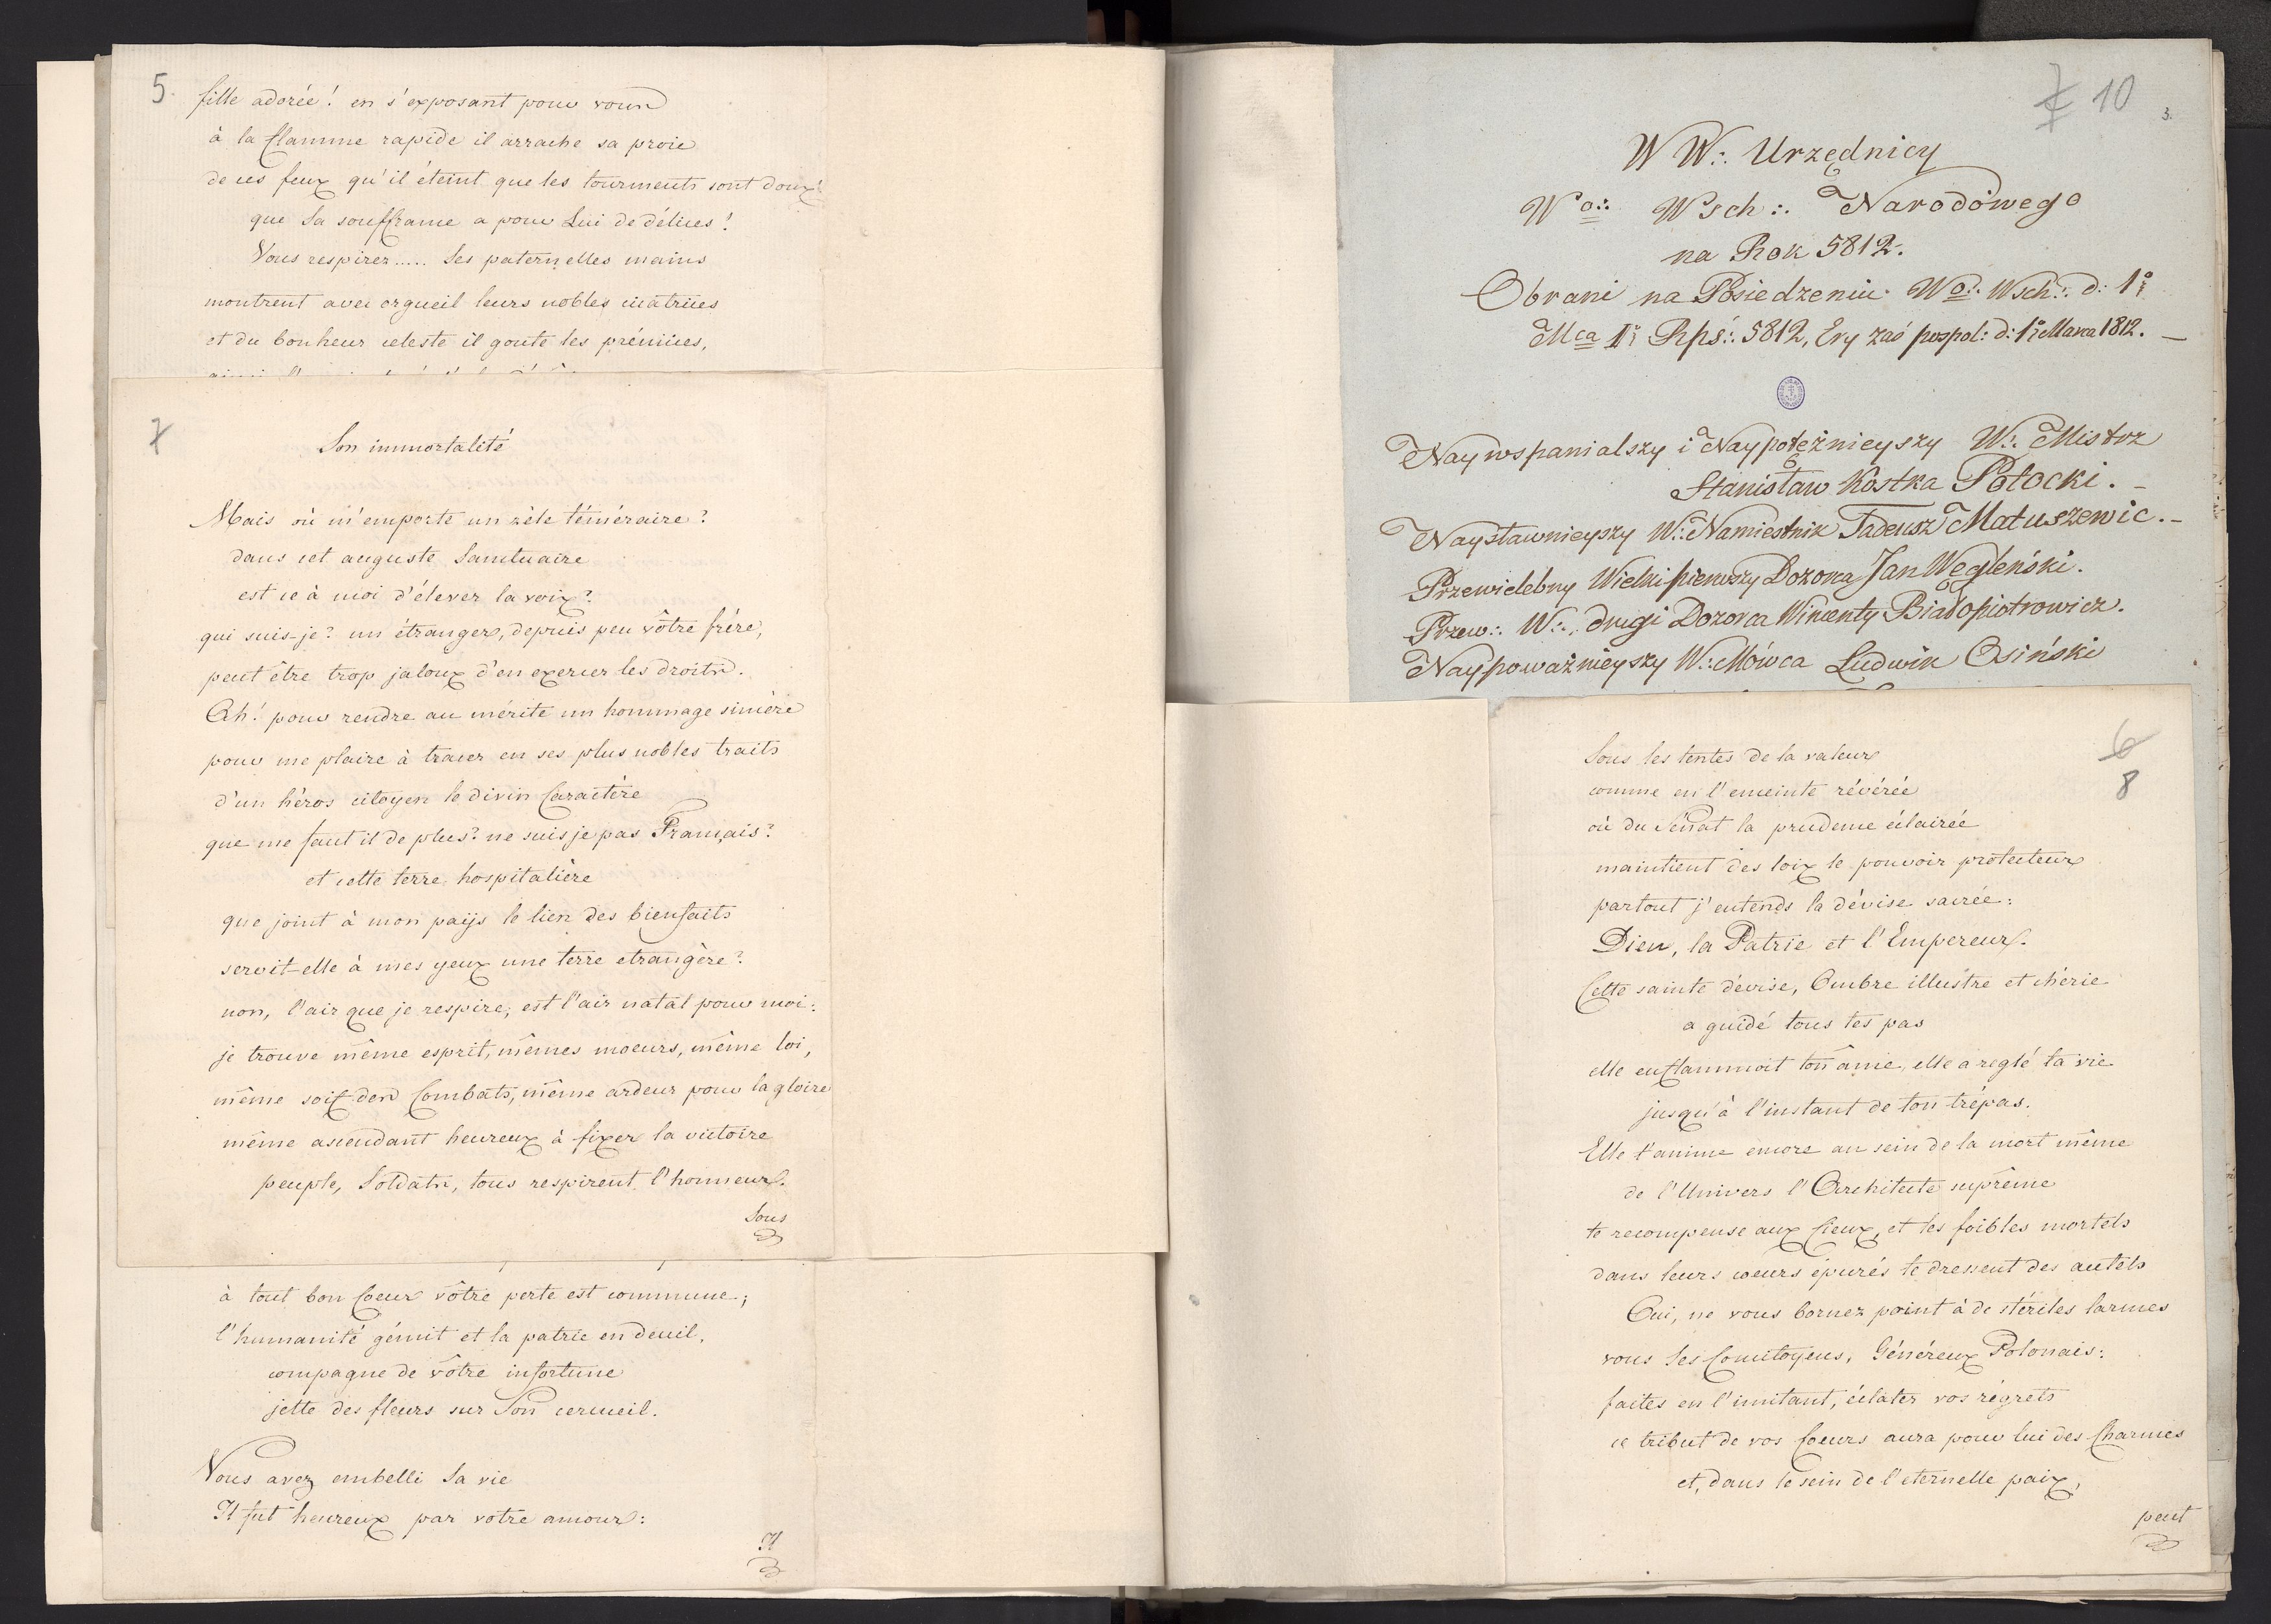 5.
fille adorée! en s'exposant pour vous
à la flamme rapide il arrache sa proie
de ces feux qu'il éteint que les tourments sont doux!
que sa souffrance a pour Lui de délices!
Vous respirez..... Ses paternelles mains
montrent avec orgueil leurs nobles cicatrices
et du bonheur celeste il goute les prémices,
7
Son immortalité
Mais où m'emporte un zèle téméraire?
dans cet auguste Sanctuaire
est ce à moi d'élever la voix?
qui suis-je? un étranger, depuis peu vôtre frère,
peut être trop jaloux d'en exercer les droits.
Ah! pour rendre au mérite un hommage sincère
pour me plaire à tracer en ses plus nobles traits
d'un héros citoyen le divin Caractère
que me faut il de plus? ne suis je pas Français?
et cette terre hospitalière
que joint à mon paÿs le lien des bienfaits
seroit-elle à mes yeux une terre etrangère?
non, l'air que je respire, est l'air natal pour moi:
je trouve même esprit, mêmes moeurs, même loi,
même soif des Combats, même ardeur pour la gloire
même ascendant heureux à fixer la victoire
peuple, Soldats, tous respirent l'honneur.
Sous
à tout bon Coeur vôtre perte est commune;
l'humanité gémit et la patrie en deuil,
compagne de vôtre infortune
jette des fleurs sur Son cercueil.
Vous avez embelli Sa vie
Il fut heureux par votre amour:
Il
7 10
3.
W W∴ Urzędnicy
Wo∴ Wsch∴ Narodowego
na Rok 5812.
Obrani na Posiedzeniu Wo∴ Wsch∴ d: 1º
Mca 1º Rps∴ 5812, Ery zaś pospol: d: 1º Marca 1812. —
Naywspanialszy i Naypotężnieyszy W∴ Mistrz
Stanisław Kostka Potocki. —
Naysławnieyszy W∴ Namiestnik Tadeusz Matuszewic. —
Przewielebny Wielki pierwszy Dozorca Jan Węgleński.
Przew∴ W∴ drugi Dozorca Wincenty Białopiotrowicz.
Naypoważnieyszy W∴ Mówca Ludwik Osiński
6
8
Sous les tentes de la valeur
comme en l'enceinte révérée
où du Sénat la prudence éclairée
maintient des loix le pouvoir protecteur
partout j'entends la dévise sacrée:
Dieu, la Patrie et l'Empereur.
Cette sainte dévise, Ombre illustre et chérie
a guidé tous tes pas
elle enflammoit ton âme, elle a reglé ta vie
jusqu'à l'instant de ton trépas.
Elle t'anime encore au sein de la mort même
de l'Univers l'Architecte suprême
te recompense aux Cieux, et les foibles mortels
dans leurs coeurs épurés te dressent des autels
Oui, ne vous bornez point à de stériles larmes
vous Ses Concitoyens, Généreux Polonais:
faites en l'imitant, éclater vos régrets
ce tribut de vos Coeurs aura pour lui des Charmes
et, dans le sein de l'eternelle paix,
peut